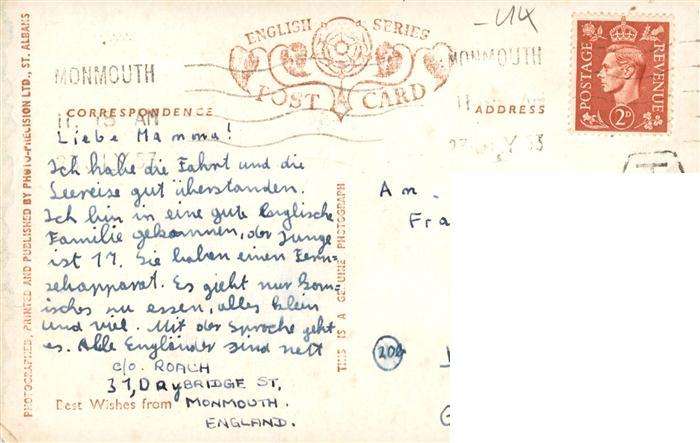 ENGLISH SERIES
POST CARD
MONMOUTH
MONMOUTH
POSTAGE
REVENUE
2D
CORRESPONDENCE
ADDRESS
Liebe Mamma!
Ich habe die Fahrt und die
Seereise gut überstanden.
Ich bin in eine gute Englische
Familie gekommen, der Junge
ist 17. Sie haben einen Fern-
sehapparat. Es gieht nur Gom-
isches zu essen, alles klein
und viel. Mit der Sprache geht
es. Alle Engländer sind nett
c/o. ROACH
37, DayBRIDGE ST,
Best Wishes from MONMOUTH.
ENGLAND.
An.
Fra
204
PHOTOGRAPHED, PRINTED AND PUBLISHED BY PHOTO-PRECISION LTD., ST. ALBANS
THIS IS A GENUINE PHOTOGRAPH